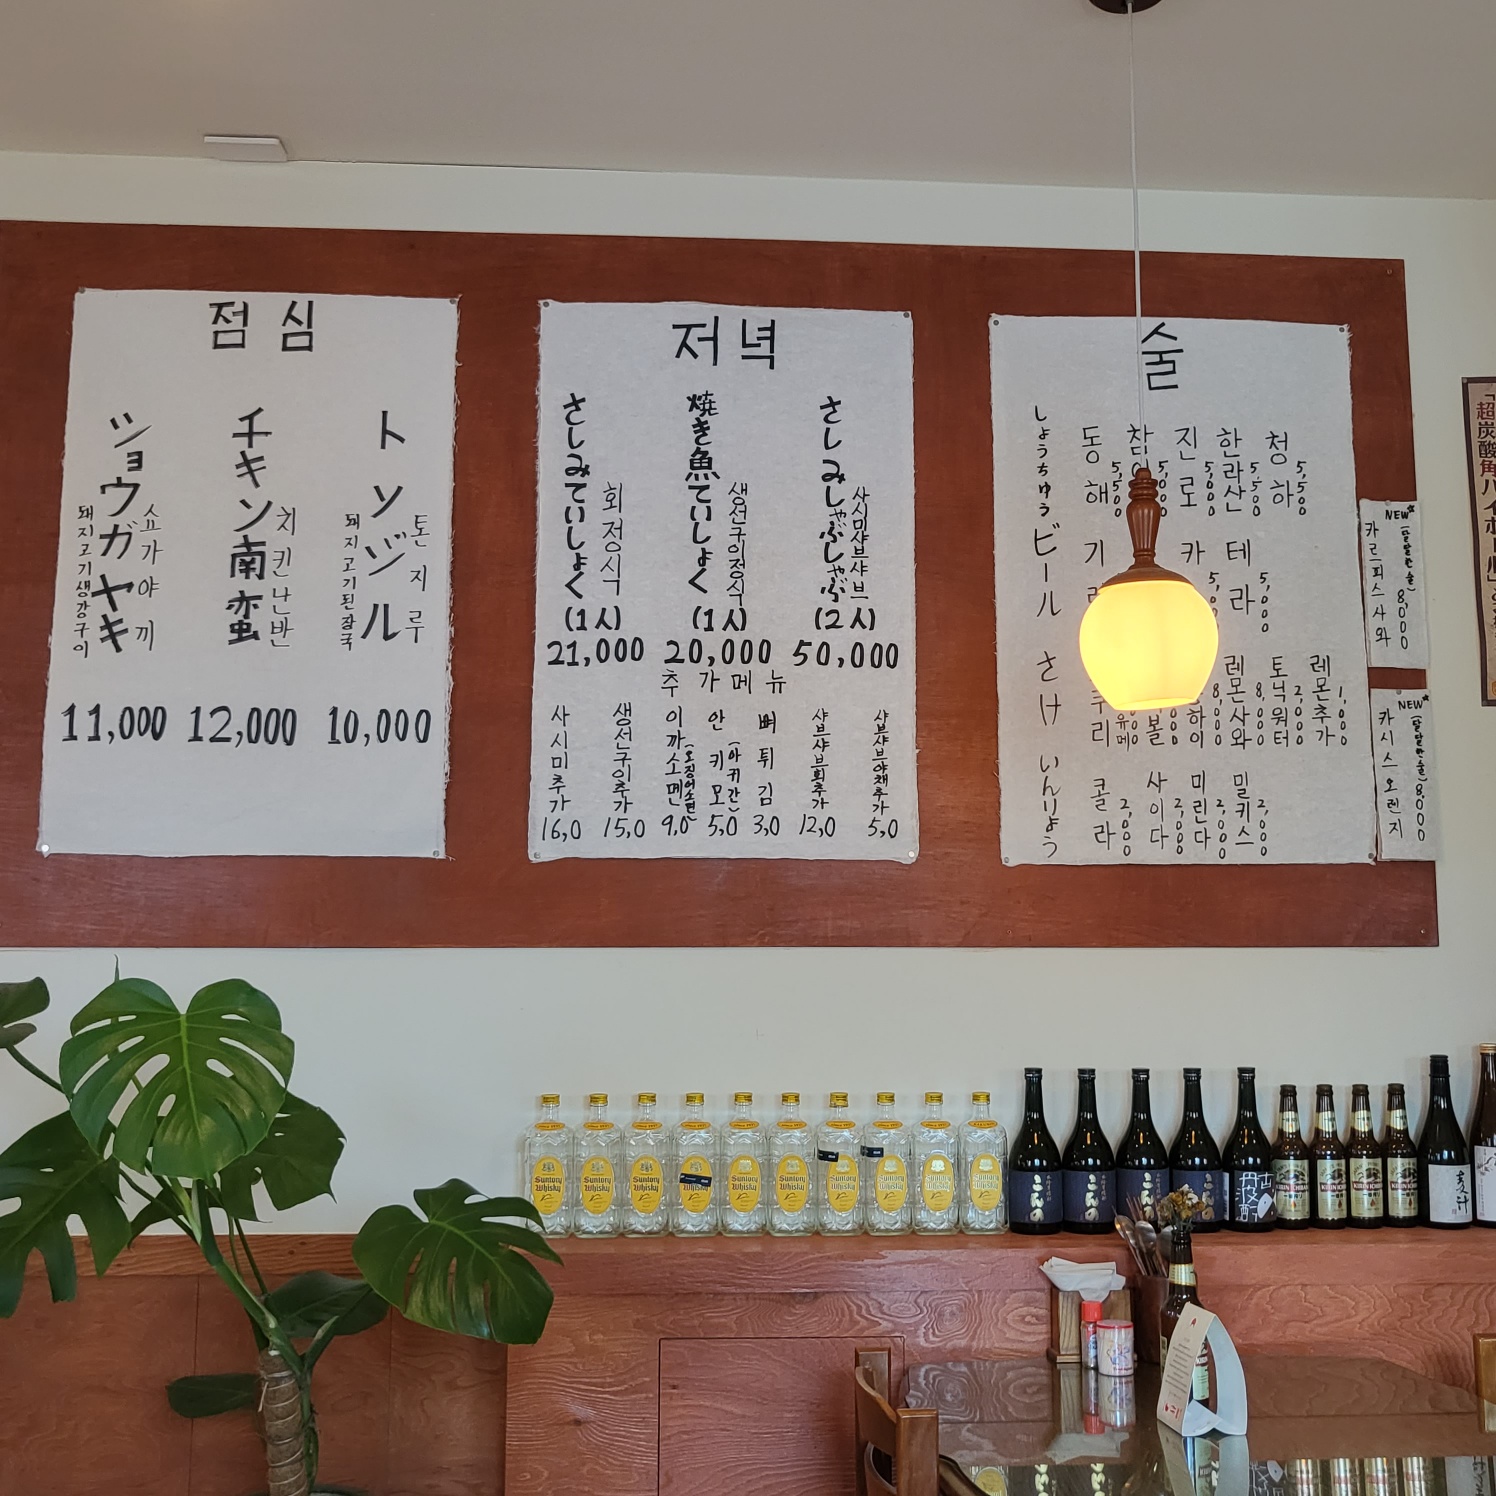 점심
ショウガヤキ
쇼가야끼
돼지고기생강구이
11,000
チキン南蛮
치킨난반
12,000
トンヅル
톤지루
돼지고기된장국
10,000
저녁
さしみていしょく
회정식
(1人)
21,000
焼き魚ていしょく
생선구이정식
(1人)
20,000
さしみしゃぶしゃぶ
사시미샤브샤브
(2人)
50,000
추가메뉴
사시미추가
16,0
생선구이추가
15,0
이까소멘
(오징어소면)
9,0
안키모
(아귀간)
5,0
뼈튀김
3,0
샤브샤브회추가
12,0
샤브샤브야채추가
5,0
술
しょうちゅう
동해
5,500
진로
5,000
한라산
5,500
청하
5,500
ビール
테라
5,000
さけ
레몬사와
8,000
토닉워터
2,000
레몬추가
1,000
いんりょう
콜라
2,000
사이다
2,000
미린다
2,000
밀키스
2,000
NEW
카르피스사와
(달달한술)
8,000
NEW
카시스오렌지
(달달한술)
8,000
Suntory Whisky
Suntory Whisky
Suntory Whisky
Suntory Whisky
Suntory Whisky
Suntory Whisky
Suntory Whisky
Suntory Whisky
麦汁